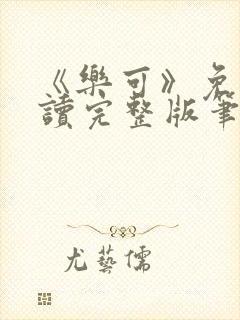 《樂可》免
讀完整版筆
尤藝儒